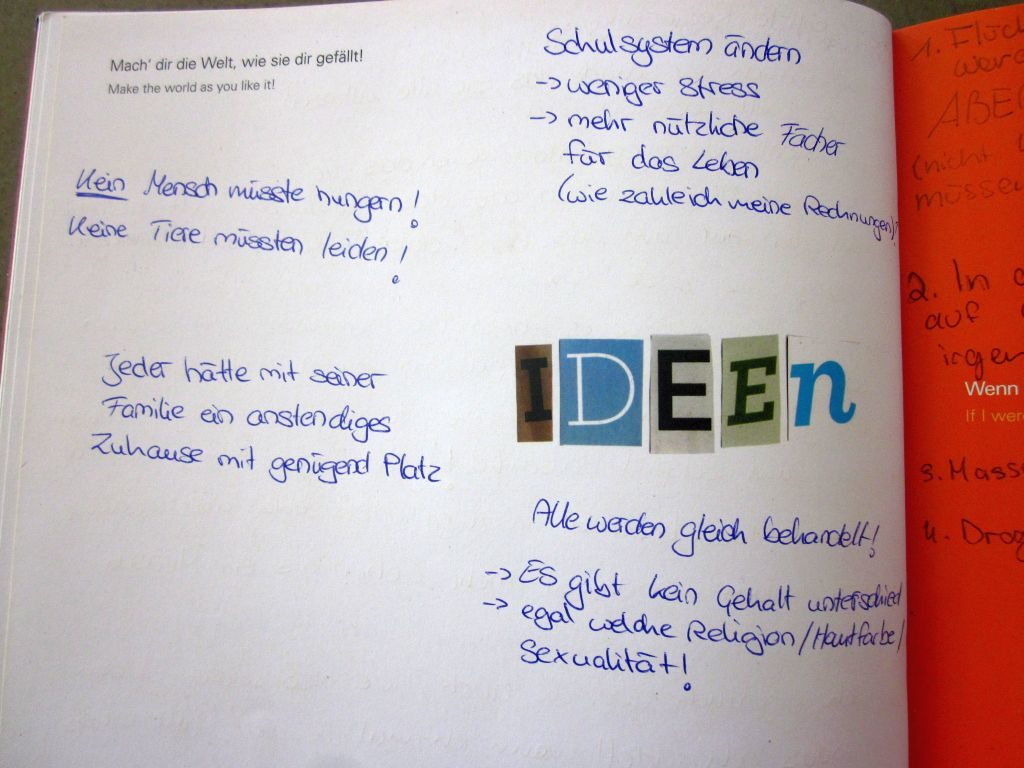 Mach' dir die Welt, wie sie dir gefällt!
Make the world as you like it!
Kein Mensch müsste hungern!
Keine Tiere müssten leiden!
Jeder hätte mit seiner
Familie ein anstendiges
Zuhause mit genügend Platz
Schulsystem ändern
-> weniger Stress
-> mehr nützliche Fächer
für das Leben
(wie zahle ich meine Rechnungen)?
IDEEn
Alle werden gleich behandelt!
-> Es gibt kein Gehalt unterschied
-> egal welche Religion/Hautfarbe/
Sexualität!
1.
müssen
2. In
auf
Wenn
If I were
3.
4.